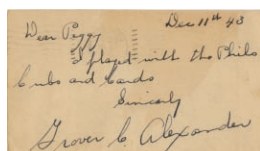 Dec 11th 43
Dear Peggy
I played with the Phils
Cubs and Cards
Sincerly
Grover C Alexander